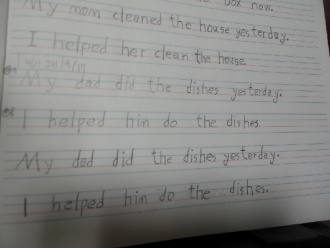 box now.
My mom cleaned the house yesterday.
I helped her clean the house
My dad did the dishes yesterday.
I helped hin do the dishes.
My dad did the dishes yesterday.
I helped hin do the dishes.